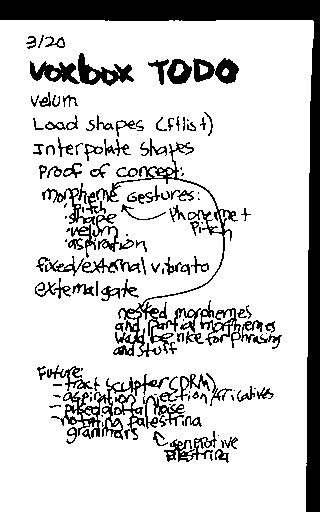 3/20
voxbox TODO
velum
Load shapes (ftlist)
Interpolate shapes
Proof of concept:
morpheme gestures:
·Pitch
·shape
·velum
·aspiration
Phoneme +
Pitch
fixed/external vibrato
external gate
nested morphemes
and partial morphemes
would be nice for phrasing
and stuff
Future:
-tract sculpter (DRM)
-aspiration injection/fricatives
-pulsed glottal noise
-notating palestrina
grammars
generative
palestrina